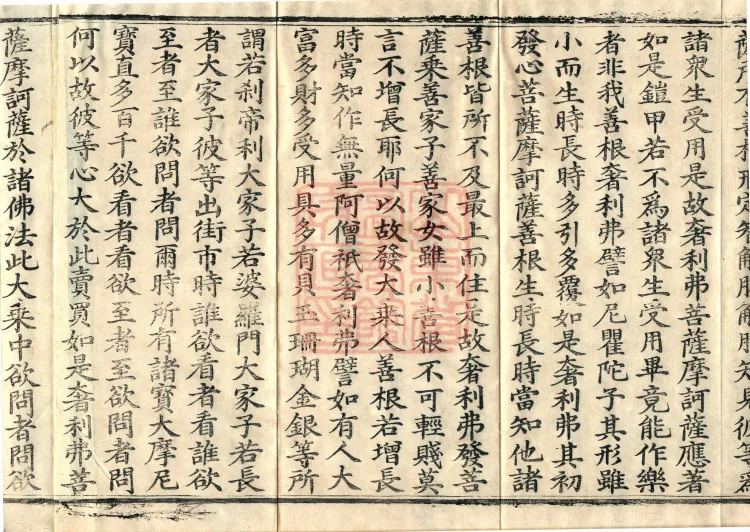 諸衆生受用是故奢利弗菩薩摩訶薩應著
如是鎧甲若不爲諸衆生受用畢竟能作樂
者非我善根奢利弗譬如尼瞿陀子其形雖
小而生時長時多引多覆如是奢利弗其初
發心菩薩摩訶薩善根生時長時當知他諸
善根皆所不及最上而住是故奢利弗發善
薩乘善家子善家女雖小善根不可輕賤莫
言不增長耶何以故發大乘人善根若增長
時當知作無量阿僧祇奢利弗譬如有人大
富多財多受用具多有貝玉珊瑚金銀等所
謂若刹帝利大家子若婆羅門大家子若長
者大家子彼等出街市時誰欲看者看誰欲
至者至誰欲問者問爾時所有諸寶大摩尼
寶直多百千欲看者看欲至者至欲問者問
何以故彼等心大於此賣買如是奢利弗善
薩摩訶薩於諸佛法此大乘中欲問者問欲